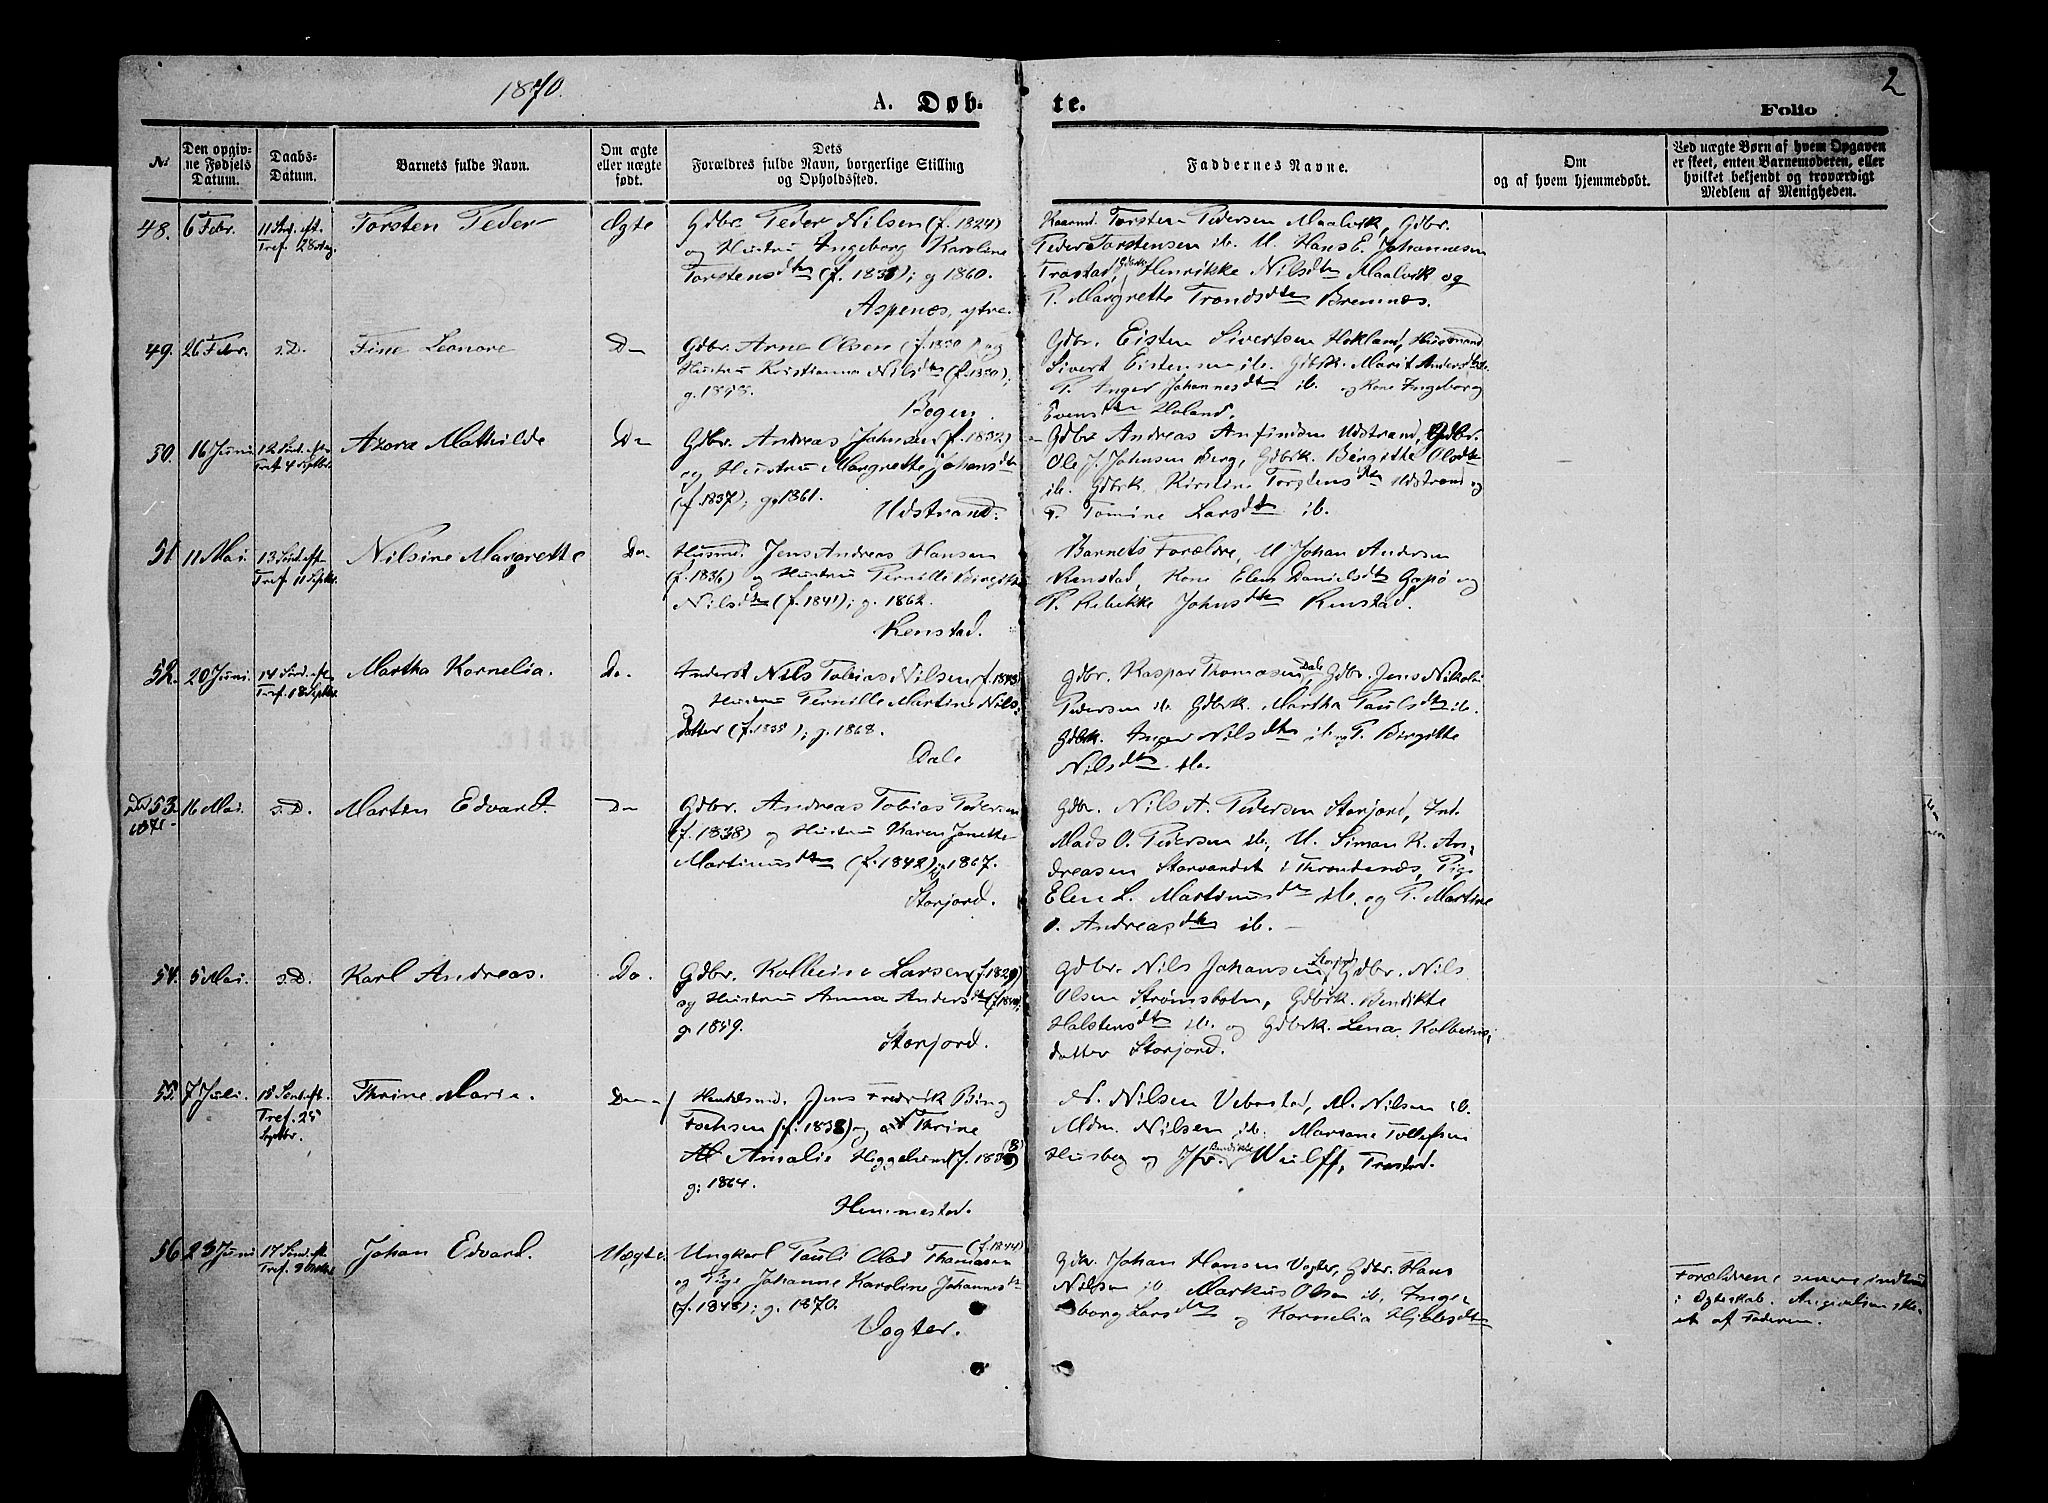 1870.
A. Døb-
te.
2
Folio
No
Den opgiv-
ne Fødsels
Datum.
Daabs-
Datum.
Barnets fulde Navn.
Om ægte
eller uægte
født.
Dets
Forældres fulde Navn, borgerlige Stilling
og Opholdssted.
Faddernes Navne.
Om
og af hvem hjemmedøbt.
Ved uægte Børn af hvem Opgaven
er skeet, enten Barnemoderen, eller
hvilket bekjendt og troværdigt
Medlem af Menigheden.
48.
6 Febr.
11 Sønd. eft.
Tref. 28 Aug.
Torsten Peder
Ægte
Gdbr. Peder Nilsen (f. 1824)
og Hustru Ingeborg Karoline
Torstensdtr (f. 1838); g 1860.
Aspenes, ytre.
Kaarmd. Torsten Pedersen Maalvik, Gdbr.
Peder Torstensen ib. U. Hans E. Johannesen
Trastad, Gdbrk. Henrikke Nilsdtr Maalvik og
P. Margrette Trondsdtr Bremnes.
49.
26 Febr.
s.D.
Fine Leonore
Do
Gdbr. Arne Olsen (f. 1830) og
Hustru Kristianna Nilsdtr (f. 1830);
g. 1858.
Bogen.
Gdbr. Eisten Sivertsen Hokland, Husmand
Sivert Eistensen ib. Gdbrk. Marit Andersdtr ib.
P. Inger Johannesdtr ib. og Kone Ingeborg
Evensdtr Holand.
50.
16 Juni
12 Sønd. eft.
Tref 4 Septbr.
Azora Mathilde
Do
Gdbr. Andreas Johnsen (f. 1832)
og Hustru Margrette Johansdtr
(f. 1837); g. 1861.
Udstrand.
Gdbr Andreas Anfindsen Udstrand, Gdbr.
Ole J. Johnsen Berg, Gdbrk. Birgitte Olsdtr
ib. Gdbrk. Kirstine Torstensdtr Udstrand og
P. Tomine Larsdtr ib.
51
11 Mai.
13 Sønd. eft.
Tref 11 Septbr.
Nilsine Margrette
Do.
Husmd. Jens Andreas Hansen
(f. 1836) og Hustru Pernille Birgitte
Nilsdtr (f. 1841); g. 1862.
Renstad.
Barnets Forældre, U. Johan Andersen
Renstad, Kone Elen Danielsdtr Gapø og
P. Rebekke Johnsdtr Renstad.
52.
20 Juni.
14 Sønd. eft.
Tref. 18 Septbr.
Martha Kornelia.
Do.
Inderst Nils Tobias Nilsen (f. 1843)
og Hustru Pernille Martine Nils-
datter (f. 1838); g. 1868.
Dale
Gdbr. Kaspar Thomasen Dale, Gdbr. Jens Nikolai
Pedersen ib. Gdbrk. Martha Paulsdtr ib.
Gdbrk. Inger Nilsdtr ib. og P. Birgitte
Nilsdtr ib.
53.
1871.
16 Mai.
s.D.
Morten Edvard.
Do
Gdbr. Andreas Tobias Pedersen
(f. 1838) og Hustru Karen Janette
Martinusdtr (f. 1842); g. 1867.
Storjord.
Gdbr. Nils A. Pedersen Storjord, Ind.
Mads O. Pedersen ib., U. Simon K. An-
dreasen Storvandet i Throndenæs, Pige
Elen L. Martinusdtr ib. og P. Martine
O. Andreasdtr ib.
54.
5 Mai.
s.D.
Karl Andreas.
Do.
Gdbr. Kolbein Larsen (f. 1829)
og Hustru Anna Andersdtr
g. 1859.
Storjord.
Gdbr. Nils Johansen Storjord, Gdbr. Nils
Olsen Strømsholm, Gdbrk. Bendikte
Halstensdtr ib. og Gdbrk. Lena Kolbeins-
datter Storjord.
55.
7 Juli.
15 Sønd. eft.
Tref. 25
Septbr.
Thrine Marie.
Do
Handelsmd. Jens Fredrik Bing
(f. 1838) og Thrine
Amalie Heggelund (f. 1838)
g; 1864.
Hemmestad.
N. Nilsen Vebostad, M. Nilsen ib.
Mdm. Nilsen ib. Mariane Tollefsen
Husby og Jfr. Bendikte Wulff, Trastad.
56
23 Juni
17 Sønd. eft.
Tref. 9 Octbr.
Johan Edvard.
Uægte.
Ungkarl Pauli Olai Thomasen (f. 1844)
og Pige Johanne Karoline Johannesdtr
(f. 1848); g. 1870.
Vogter.
Gdbr. Johan Hansen Vogter, Gdbr. Hans
Nilsen ib Markus Olsen ib. Inge-
borg Larsdtr og Kornelia Hjelesdtr
Forældrene senere indtraad
i Ægteskab. Angivelsen ske-
et af Faderen.